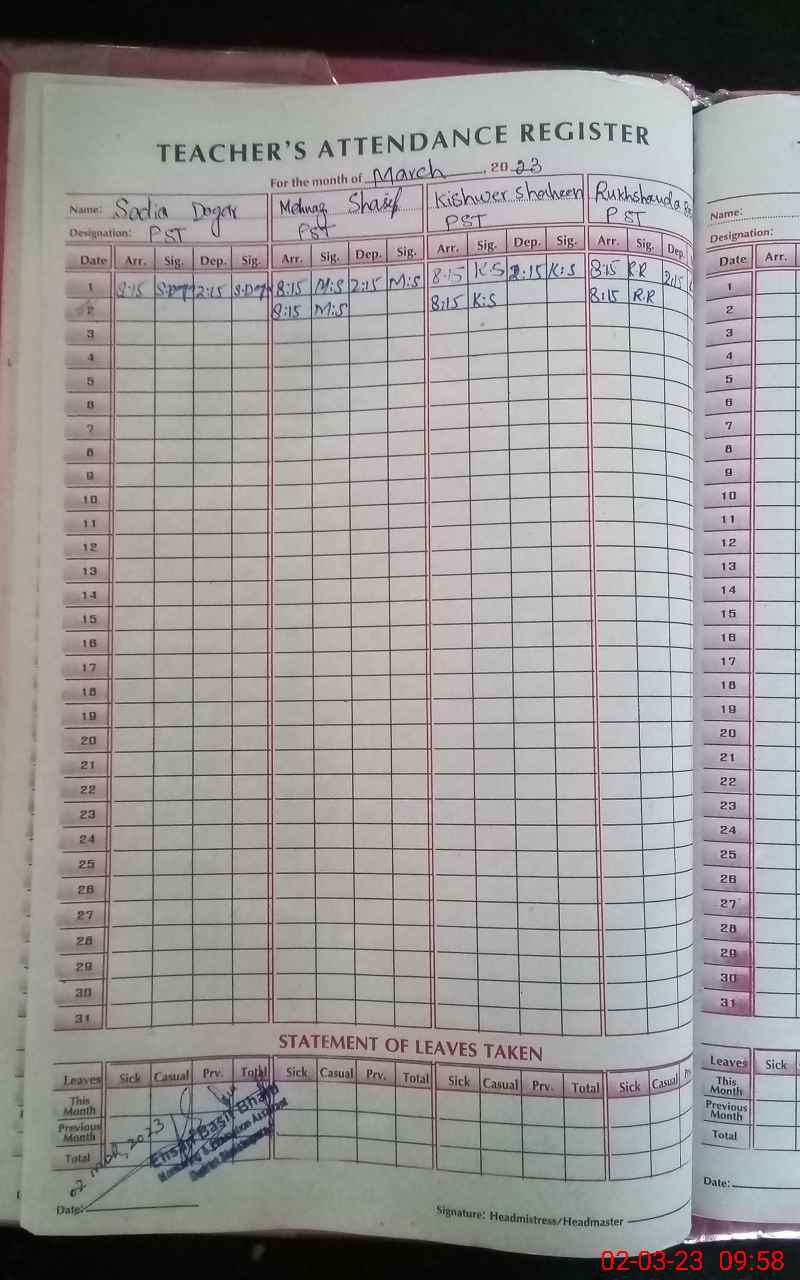 TEACHER'S ATTENDANCE REGISTER
For the month of March, 2023
Name: Sadia Dogar Mehnaz Sharif Kishwer Shaheen Rukhshanda
Designation: PST PST PST PST
Date Arr. Sig. Dep. Sig. Arr. Sig. Dep. Sig. Arr. Sig. Dep. Sig. Arr. Sig. Dep.
1 8:15 S.Dog 2:15 S.Dog 8:15 M:S 2:15 M:S 8:15 K:S 2:15 K:S 8:15 R.R 2:15
2 8:15 M:S 8:15 K:S 8:15 R.R
3
4
5
6
7
8
9
10
11
12
13
14
15
16
17
18
19
20
21
22
23
24
25
26
27
28
29
30
31
STATEMENT OF LEAVES TAKEN
Leaves Sick Casual Prv. Total Sick Casual Prv. Total Sick Casual Prv. Total Sick Casual
This Month
Previous Month
Total
02 march, 2023
Date:
Signature: Headmistress/Headmaster
Name:
Designation:
Date Arr.
1
2
3
4
5
6
7
8
9
10
11
12
13
14
15
16
17
18
19
20
21
22
23
24
25
26
27
28
29
30
31
Leaves Sick
This Month
Previous Month
Total
Date:
02-03-23 09:58